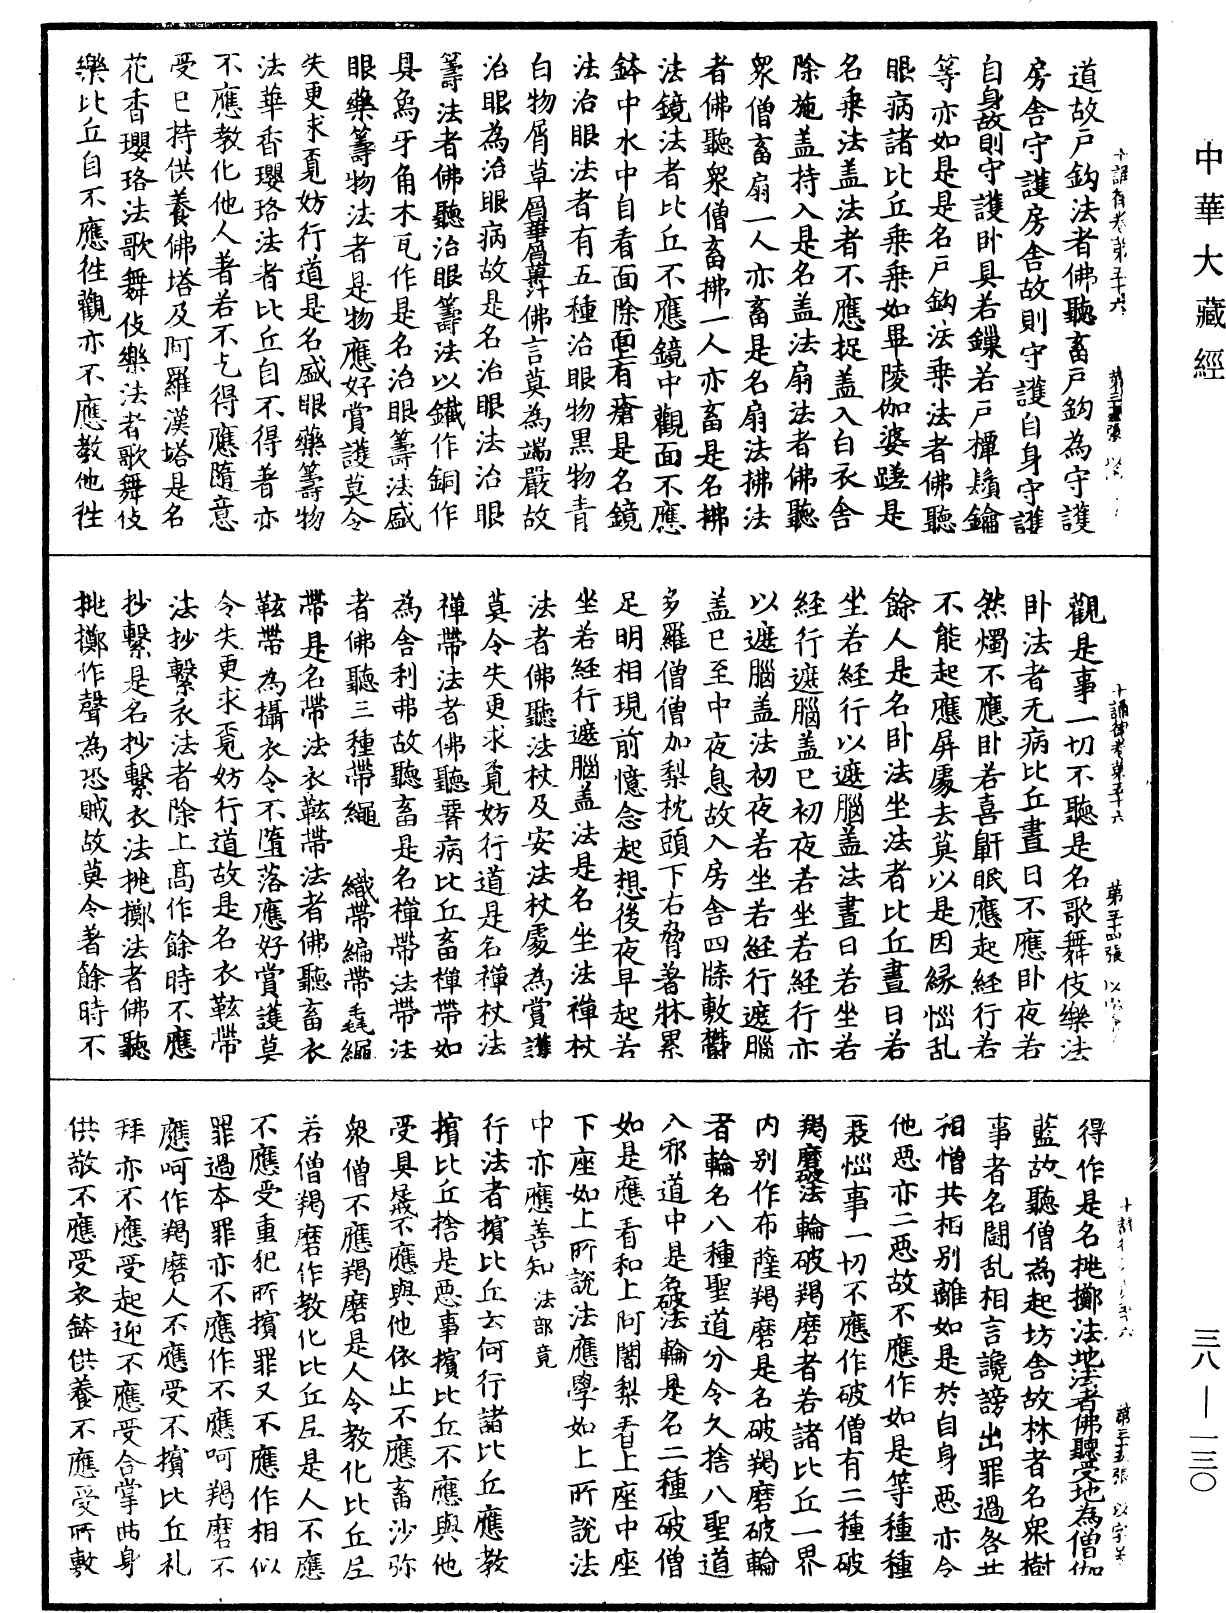 中華大藏經
道故戶鈎法者佛聽畜戶鈎為守護
房舍守護房舍故則守護自身守護
自身故則守護卧具若鏁若戶撣鬚鑰
等亦如是是名戶鈎法乘法者佛聽
眼病諸比丘乘乘如畢陵伽婆蹉是
名乘法盖法者不應捉盖入白衣舍
除施盖持入是名盖法扇法者佛聽
衆僧畜扇一人亦畜是名扇法拂法
者佛聽衆僧畜拂一人亦畜是名拂
法鏡法者比丘不應鏡中觀面不應
鉢中水中自看面除面有瘡是名鏡
法治眼法者有五種治眼物黒物青
白物屑草屑華屑菓汁佛言莫為端嚴故
治眼為治眼病故是名治眼法治眼
籌法者佛聽治眼籌法以鐵作銅作
具烏牙角木瓦作是名治眼籌法盛
眼藥籌物法者是物應好賞護莫令
失更求覓妨行道是名盛眼藥籌物
法華香瓔珞法者比丘自不得著亦
不應教化他人著若不乞得應隨意
受已持供養佛塔及阿羅漢塔是名
花香瓔珞法歌舞伎樂法者歌舞伎
樂比丘自不應往觀亦不應教他往
觀是事一切不聽是名歌舞伎樂法
卧法者无病比丘晝日不應卧夜若
然燭不應卧若喜鼾眠應起經行若
不能起應屏處去莫以是因緣惱乱
餘人是名卧法坐法者比丘晝日若
坐若經行以遮腦盖法晝日若坐若
經行遮腦盖已初夜若坐若經行亦
以遮腦盖法初夜若坐若經行遮腦
盖已至中夜息故入房舍四牒敷欝
多羅僧僧加梨枕頭下右脅著牀累
足明相現前憶念起想後夜早起若
坐若經行遮腦盖法是名坐法禪杖
法者佛聽法杖及安法杖處為賞護
莫令失更求覓妨行道是名禪杖法
禪帶法者佛聽㿈病比丘畜禪帶如
為舍利弗故聽畜是名禪帶法帶法
者佛聽三種帶繩 織帶編帶毳繩
帶是名帶法衣䩙帶法者佛聽畜衣
䩙帶為攝衣令不墮落應好賞護莫
令失更求覓妨行道故是名衣䩙帶
法抄繫衣法者除上高作餘時不應
抄繫是名抄繫衣法挑擲法者佛聽
挑擲作聲為恐賊故莫令著餘時不
得作是名挑擲法地法者佛聽受地為僧伽
藍故聽僧為起坊舍故林者名衆樹
事者名鬪乱相言讒謗出罪過各共
相憎共相别離如是於自身惡亦令
他惡亦二惡故不應作如是等種種
衰惱事一切不應作破僧有二種破
羯磨破法輪破羯磨者若諸比丘一界
内别作布薩羯磨是名破羯磨破輪
者輪名八種聖道分令久捨八聖道
入邪道中是名破法輪是名二種破僧
如是應看和上阿闍梨看上座中座
下座如上所說法應學如上所說法
中亦應善知 法部竟
行法者擯比丘云何行諸比丘應教
擯比丘捨是惡事擯比丘不應與他
受具戒不應與他依止不應畜沙弥
衆僧不應羯磨是人令教化比丘尼
若僧羯磨作教化比丘尼是人不應
不應受重犯所擯罪又不應作相似
罪過本罪亦不應作不應呵羯磨不
應呵作羯磨人不應受不擯比丘礼
拜亦不應受起迎不應受合掌曲身
供敬不應受衣鉢供養不應受所敷
三八—一三〇